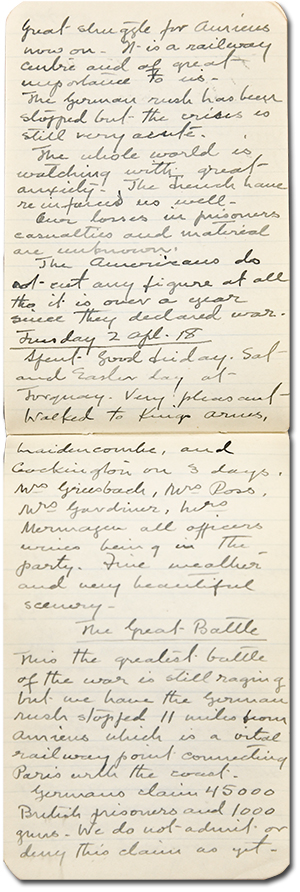 Great struggle for Amiens
now on - It is a railway
centre and of great
importance to us -
The German rush has been
stopped but the crisis is
still very acute.
The whole world is
watching with great
anxiety. The French have
reinforced us well -
Our losses in prisoners
casualties and material
are unknown.
The Americans do
not cut any figure at all
tho it is over a year
since they declared war.
Tuesday 2 Apl. 18
Spent Good Friday. Sat
and Easter day at
Torquay. Very pleasant -
Walked to Kings arms,
Maidencombe, and
Cockington on 3 days.
Mrs Griesbach, Mrs Ross,
Mrs Gardiner, Mrs
Mermagen all officers
wives being in the
party. Fine weather
and very beautiful
scenery -
The Great Battle
This the greatest battle
of the war is still raging
but we have the German
rush stopped 11 miles from
Amiens which is a vital
railway point connecting
Paris with the coast -
Germans claim 45000
British prisoners and 1000
guns - We do not admit or
deny this claim as yet -